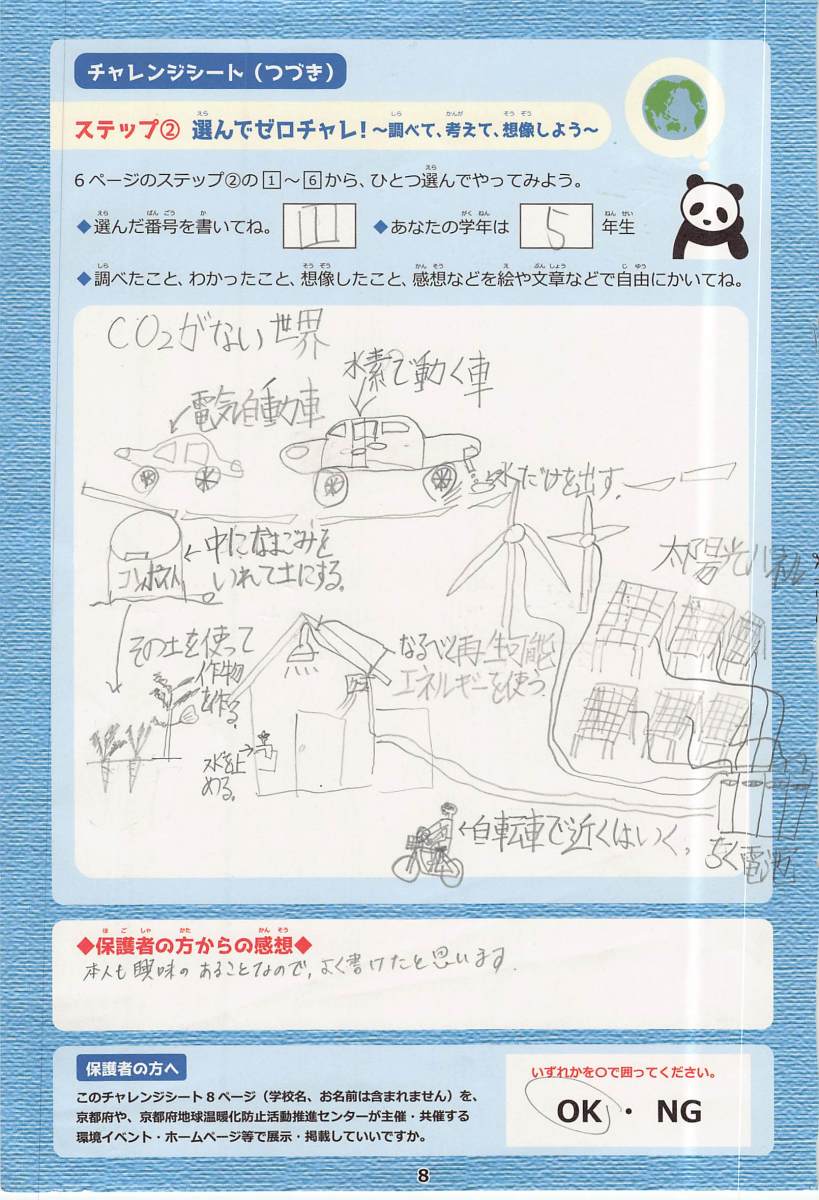 チャレンジシート（つづき）
ステップ② 選んでゼロチャレ！～調べて、考えて、想像しよう～
6ページのステップ②の1～6から、ひとつ選んでやってみよう。
◆選んだ番号を書いてね。 1 ◆あなたの学年は 5 年生
◆調べたこと、わかったこと、想像したこと、感想などを絵や文章などで自由にかいてね。
CO₂がない世界
水素で動く車
電気自動車
水だけを出す。
太陽光パネル
中になまごみを
いれて土にする。
コンポスト
その土を使って
作物
を作る。
なるべく再生可能
エネルギーを使う
水を止
める。
←自転車で近くはいく。
ちく電池
◆保護者の方からの感想◆
本人も興味のあることなので、よく書けたと思います。
保護者の方へ
このチャレンジシート8ページ（学校名、お名前は含まれません）を、
京都府や、京都府地球温暖化防止活動推進センターが主催・共催する
環境イベント・ホームページ等で展示・掲載していいですか。
いずれかを○で囲ってください。
OK ・ NG
8